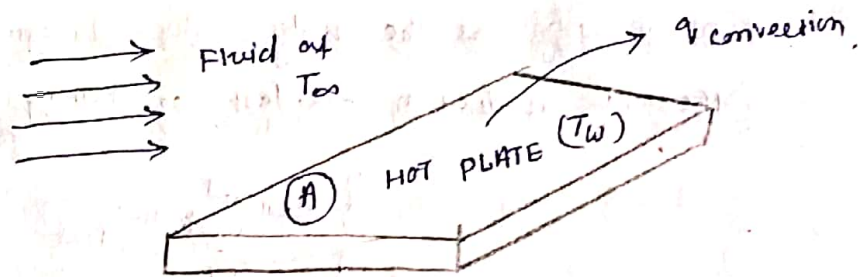 Fluid at
T∞
q convection.
HOT PLATE (Tw)
A